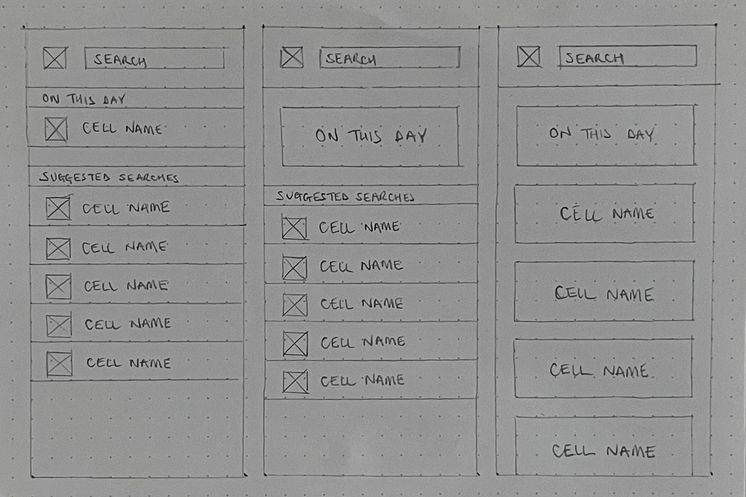 SEARCH
ON THIS DAY
CELL NAME
SUGGESTED SEARCHES
CELL NAME
CELL NAME
CELL NAME
CELL NAME
CELL NAME
SEARCH
ON THIS DAY
SUGGESTED SEARCHES
CELL NAME
CELL NAME
CELL NAME
CELL NAME
CELL NAME
SEARCH
ON THIS DAY
CELL NAME
CELL NAME
CELL NAME
CELL NAME